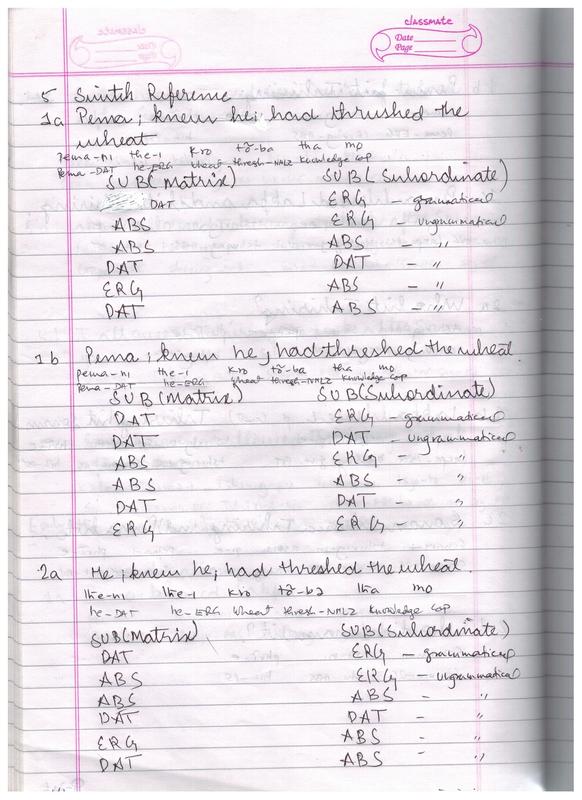 classmate
Date
Page
5 Switch Reference
1a Pema i knew he i had thrushed the
wheat
Pema-ni the-i kro tõ-ba tha mo
Pema-DAT he-ERG wheat thresh-NMLZ knowledge cop
SUB(Matrix) SUB(Subordinate)
DAT ERG - grammatical
ABS ERG - ungrammatical
ABS ABS - "
DAT DAT - "
ERG ABS - "
DAT ABS - "
1b Pema i knew he j had threshed the wheat.
Pema-ni the-i kro tõ-ba tha mo
Pema-DAT he-ERG wheat thresh-NMLZ knowledge cop
SUB(Matrix) SUB(Subordinate)
DAT ERG - grammatical
DAT DAT - ungrammatical
ABS ERG - "
ABS ABS - "
DAT DAT - "
ERG ERG - "
2a He i knew he j had threshed the wheat.
the-ni the-i kro tõ-ba tha mo
he-DAT he-ERG wheat thresh-NMLZ knowledge cop
SUB(Matrix) SUB(Subordinate)
DAT ERG - grammatical
ABS ERG - ungrammatical
ABS ABS - "
DAT DAT - "
ERG ABS - "
DAT ABS - "